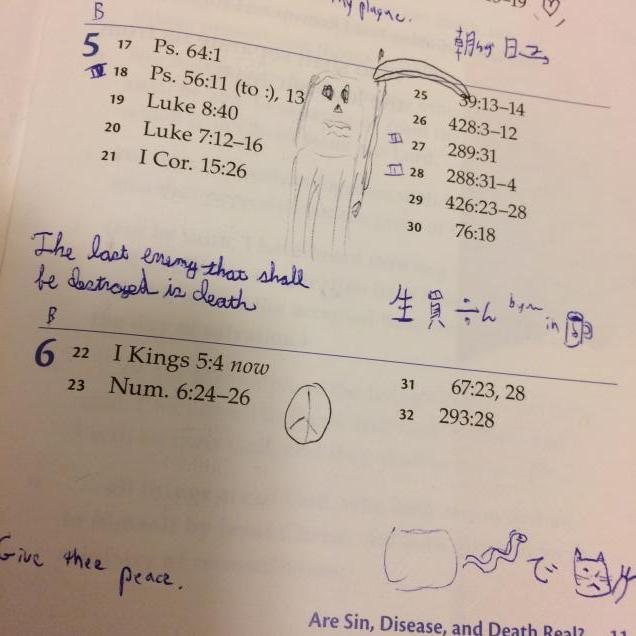 my plague.
B
5 17 Ps. 64:1
IV 18 Ps. 56:11 (to :), 13
19 Luke 8:40
20 Luke 7:12–16
21 I Cor. 15:26
25 39:13–14
26 428:3–12
II 27 289:31
I 28 288:31–4
29 426:23–28
30 76:18
The last enemy that shall
be destroyed is death
生 員 in
B
6 22 I Kings 5:4 now
23 Num. 6:24–26
31 67:23, 28
32 293:28
Give thee peace.
で
Are Sin, Disease, and Death Real?